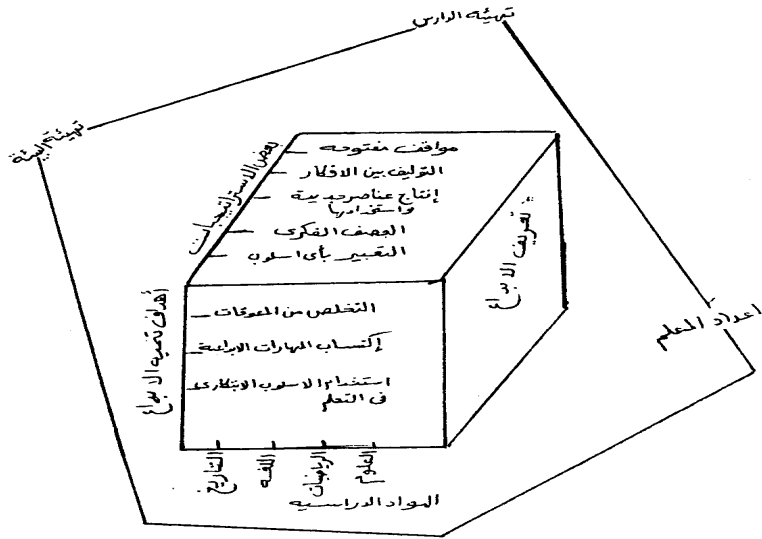 تهيئة الدارس
تهيئة البيئة
بعض الاستراتيجيات
مواقف مفتوحه
التوليف بين الافكار
إنتاج عناصر جديدة
واستخدامها
العصف الفكرى
التعبير بأى اسلوب
تعريف الابداع
اعداد المعلم
أهداف تنمية الابداع
التخلص من المعوقات
إكتساب المهارات الابداعية
استخدام الاسلوب الابتكارى
فى التعلم
العلوم
الرياضيات
اللغه
التاريخ
المواد الدراسيه